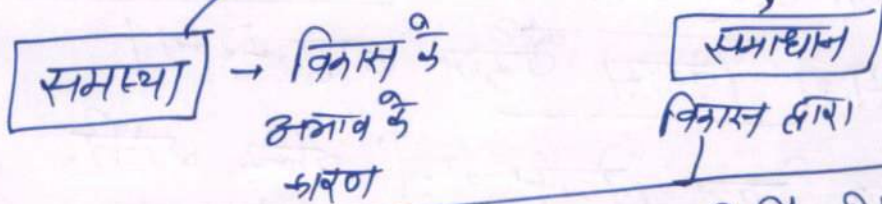 समस्या → विकास के
अभाव के
कारण
समाधान
विकास द्वारा